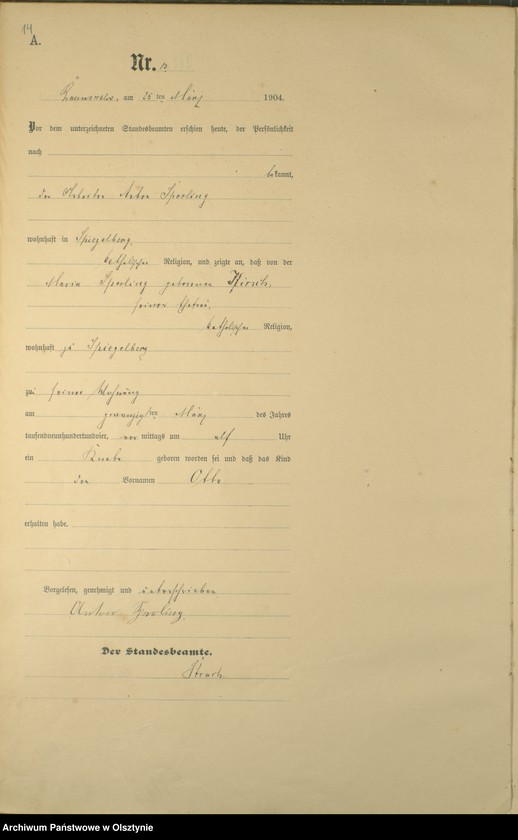 14
A.
Nr.
am 25 ten März 1904.
Vor dem unterzeichneten Standesbeamten erschien heute, der Persönlichkeit
nach
bekannt,
der Arbeiter Sporling
wohnhaft in Spiegelberg,
katholischer Religion, und zeigte an, daß von der
Maria Sporling geborenen Hirsch,
seiner Ehefrau,
katholischer Religion,
wohnhaft zu Spiegelberg
zu seiner Wohnung
am zwanzigsten März des Jahres
tausendneunhundertundvier, vor mittags um elf Uhr
ein Knabe geboren worden sei und daß das Kind
den Vornamen Otto
erhalten habe.
Vorgelesen, genehmigt und unterschrieben
Anton
Der Standesbeamte.
Archiwum Państwowe w Olsztynie